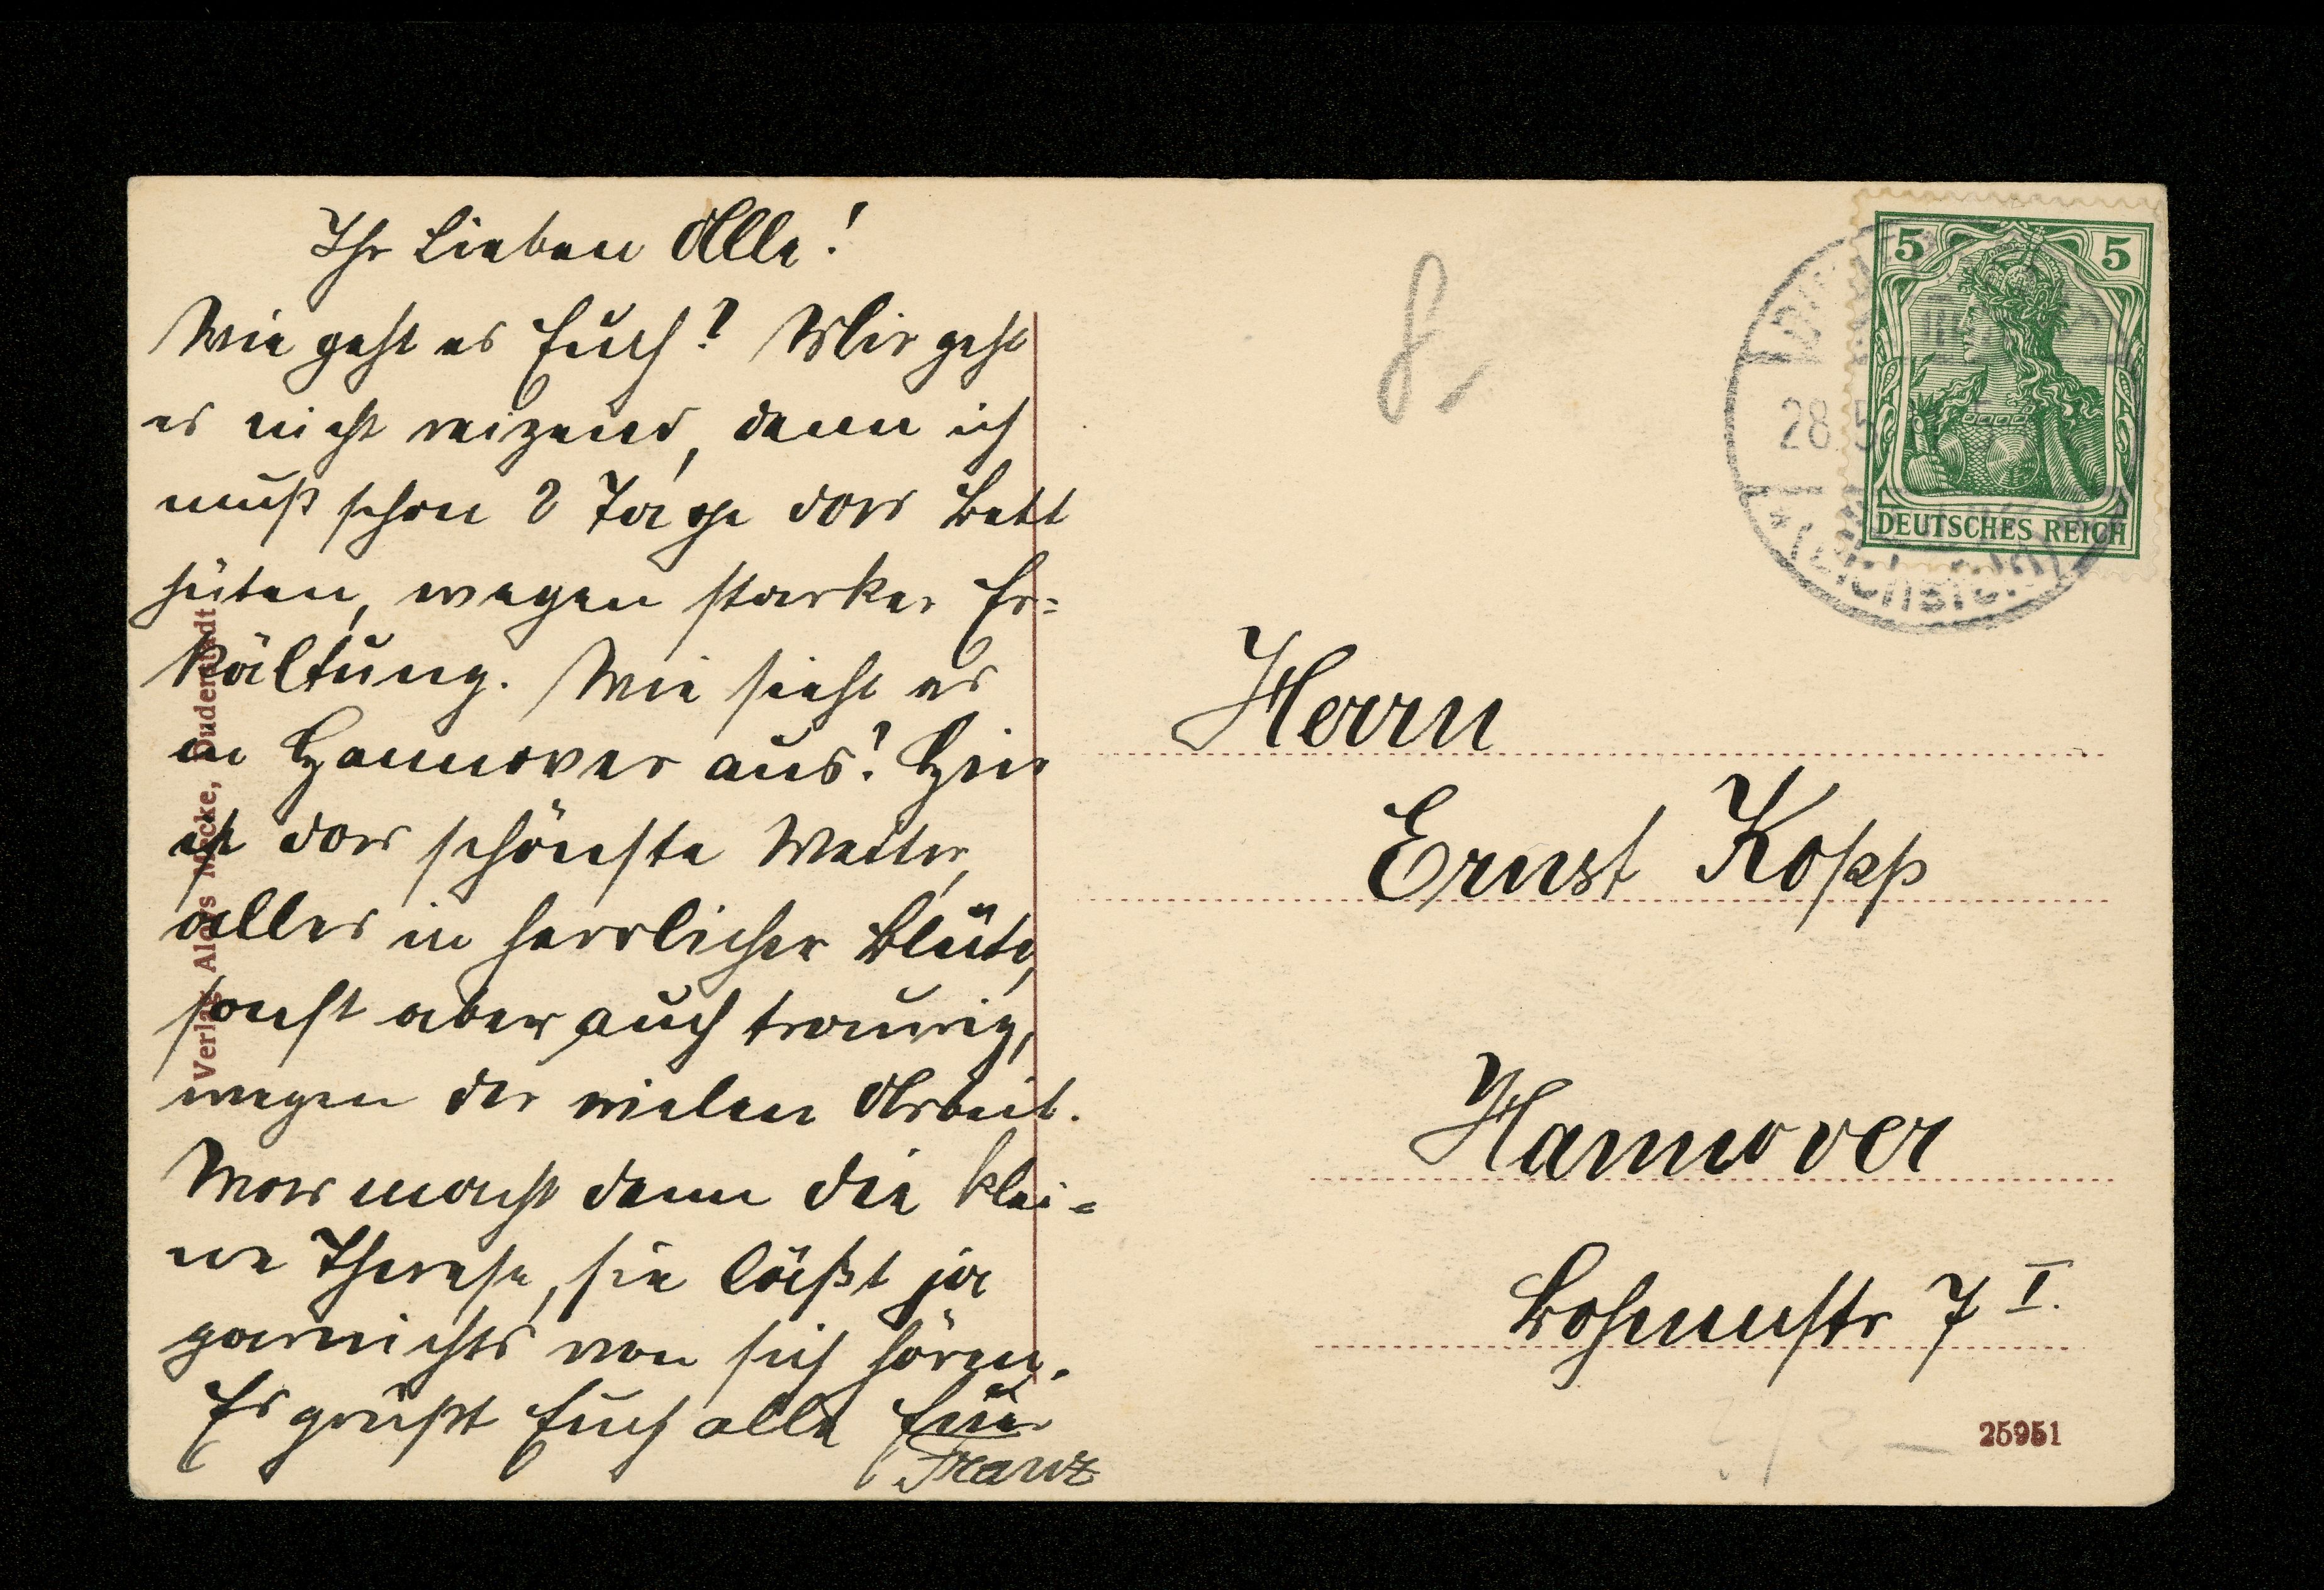 Ihr Lieben Alle!
Wie geht es Euch? Mir geht
es nicht reizend, denn ich
muß schon 2 Tage das Bett
hüten, wegen starker Er=
kältung. Wie sieht es
in Hannover aus? Hier
ist das schönste Wetter,
alles in herrlicher Blüte,
sonst aber auch traurig,
wegen der vielen Arbeit.
Was macht denn die klei=
ne Therese, sie läßt ja
garnichts von sich hören.
Es grüßt Euch alle Euer
Franz
Verlag Alois Mecke, Duderstadt
5 5
DEUTSCHES REICH
28.5
(Eichsfeld)
Herrn
Ernst Kopp
Hannover
7 I.
25951